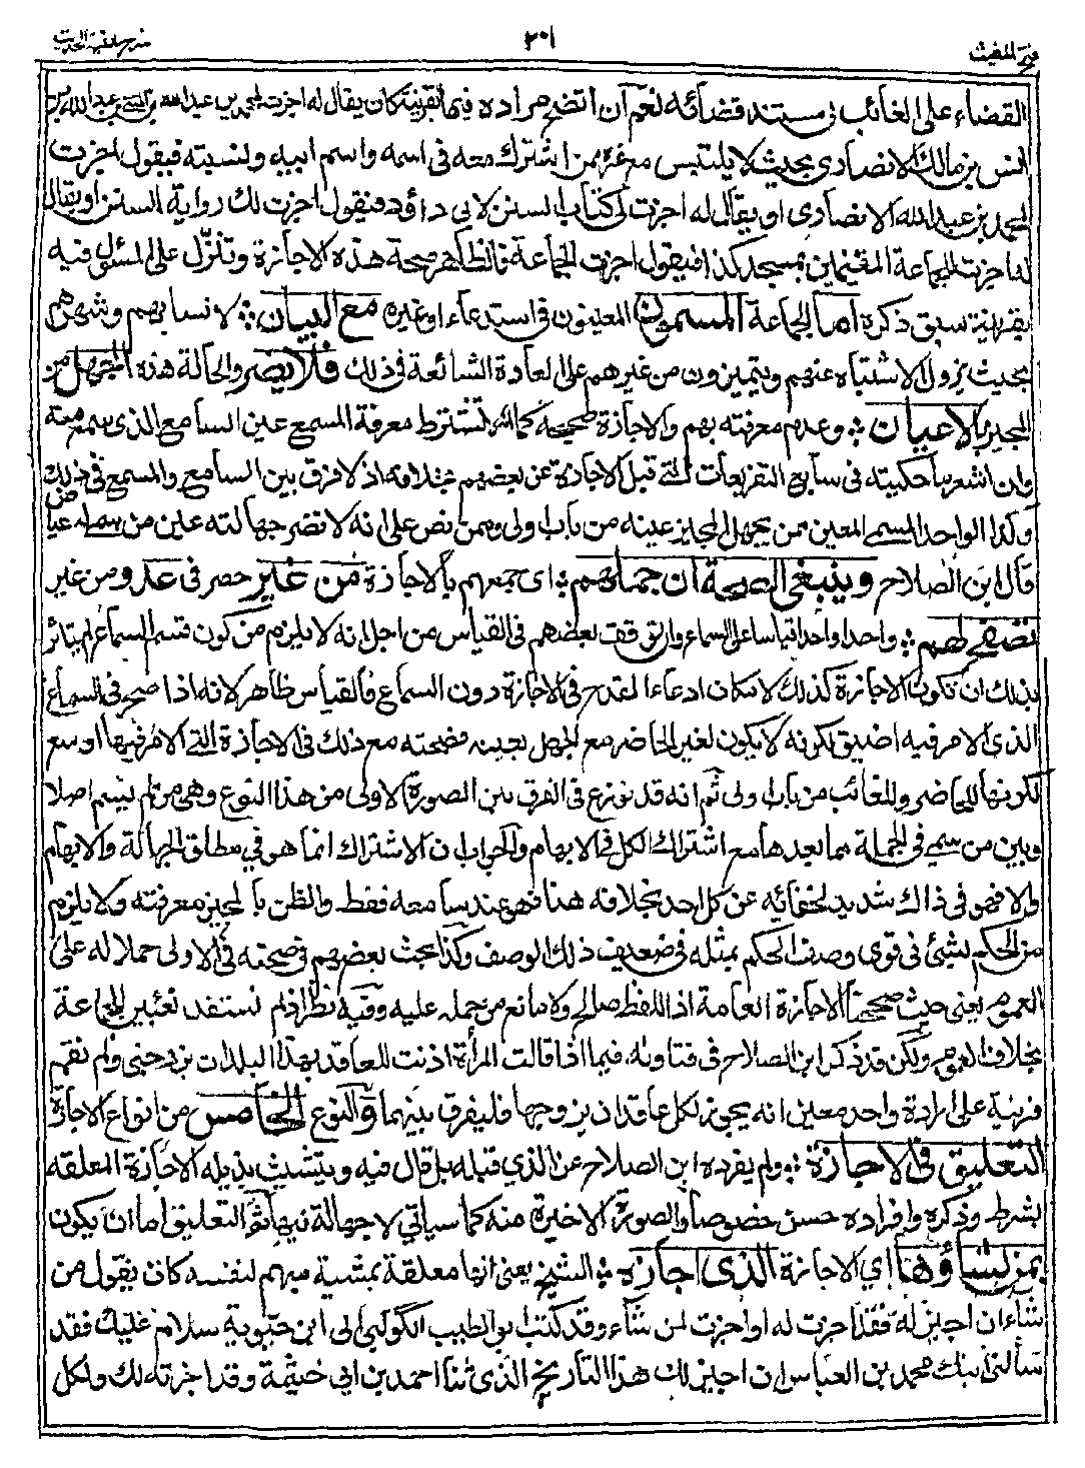 فتح المغيث
٢٠١
شرح الفية الحديث
القضاء على الغائب في مستند قضائه نعم ان اتضح مراده فيها بقرينة كان يقال له اجزت لمحمد بن عبد الله بن المثنى بن عبد الله بن
انس بن مالك الانصاري بحيث لا يلتبس مع غيره ممن اشترك معه في اسمه واسم ابيه ونسبته فيقول اجزت
لمحمد بن عبد الله الانصاري او يقال له اجزت لي كتاب السنن لابي داؤد فنقول اجزت لك رواية السنن او يقال
له اجزت للجماعة المقيمين بمسجد كذا فيقول اجزت الجماعة فالظاهر صحة هذه الاجازة وتنزل على المسئول فيه
بقرينة سبق ذكره اما الجماعة المسمون المعينون في استدعاء او غيره مع البيان لانسابهم وشهرهم
بحيث يزول الاشتباه عنهم ويتميزون من غيرهم على العادة الشائعة في ذلك فلا يضر والحالة هذه الجهل من
المجيز بالاعيان وعدم معرفته بهم والاجازة صحيحة كما انه لا تشترط معرفة المسمع عين السامع الذي سمع منه
وان اشعر ما حكيته في سابع التفريعات التي قبل الاجازة عن بعضهم بخلافه اذ لا فرق بين السامع والمسمع في ذلك
وكذا الواحد المسمى المعين ممن يجهل المجيز عينه من باب اولى وممن نص على انه لا تضر جهالته عين من سمي له عياض
قال ابن الصلاح وينبغي الصحة ان جملهم اي جمعهم بالاجازة من غير حصر في عدد ومن غير
تصفح لهم واحدا واحدا قياسا على السماع وان توقف بعضهم في القياس من اجل انه لا يلزم من كون قسم السماع لم يتاثر
بذلك ان تكون الاجازة كذلك لامكان ادعاء القدح في الاجازة دون السماع فالقياس ظاهر لانه اذا صح في السماع
الذي الامر فيه اضيق لكونه لا يكون لغير الحاضر مع الجهل بعينه فصحته مع ذلك في الاجازة التي الامر فيها اوسع
لكونها للحاضر وللغائب من باب اولى ثم انه قد نوزع في الفرق بين الصورة الاولى من هذا النوع وهي من لم يسم اصلا
وبين من سمي في الجملة مما بعدها مع اشتراك الكل في الابهام والجواب ان الاشتراك انما هو في مطلق الجهالة والابهام
والا فهو في ذاك شديد لخفائه عن كل احد بخلافه هنا فهو عند سامعه فقط والظن بالمجيز معرفته ولا يلزم
من الحكم بشئ في قوي وصف الحكم بمثله في ضعيف ذلك الوصف وكذا بحث بعضهم في صحته في الاولى حملا له على
العموم يعني حيث صححنا الاجازة العامة اذ اللفظ صالح ولا مانع من حمله عليه وفيه نظر اذ لم نستفد تعيين الجماعة
بخلاف العموم ولكن قد ذكر ابن الصلاح في فتاويه فيما اذا قالت المرأة اذنت للعاقد بهذا البلد ان يزوجني ولم تقم
قرينة على ارادة واحد معين انه يجوز لكل عاقد ان يزوجها فليفرق بينهما والنوع الخامس من انواع الاجازة
التعليق في الاجازة ولم يفرده ابن الصلاح عن الذي قبله بل قال فيه ويتشبث بذيله الاجازة المعلقة
بشرط وذكره وافراده حسن خصوصا والصورة الاخيرة منه كما سياتي لا جهالة فيها ثم التعليق اما ان يكون
بمن يشاؤها اي الاجازة الذي اجازه الشيخ يعني انها معلقة بمشية مبهم لنفسه كان يقول من
شاء ان اجيز له فقد اجزت له او اجزت لمن شاء وقد كتب ابو الطيب الكوكبي الى ابن حيوية سلام عليك فقد
سألني ابنك محمد بن العباس ان اجيز لك هذا التاريخ الذي ثنا احمد بن ابي خيثمة وقد اجزته لك ولكل